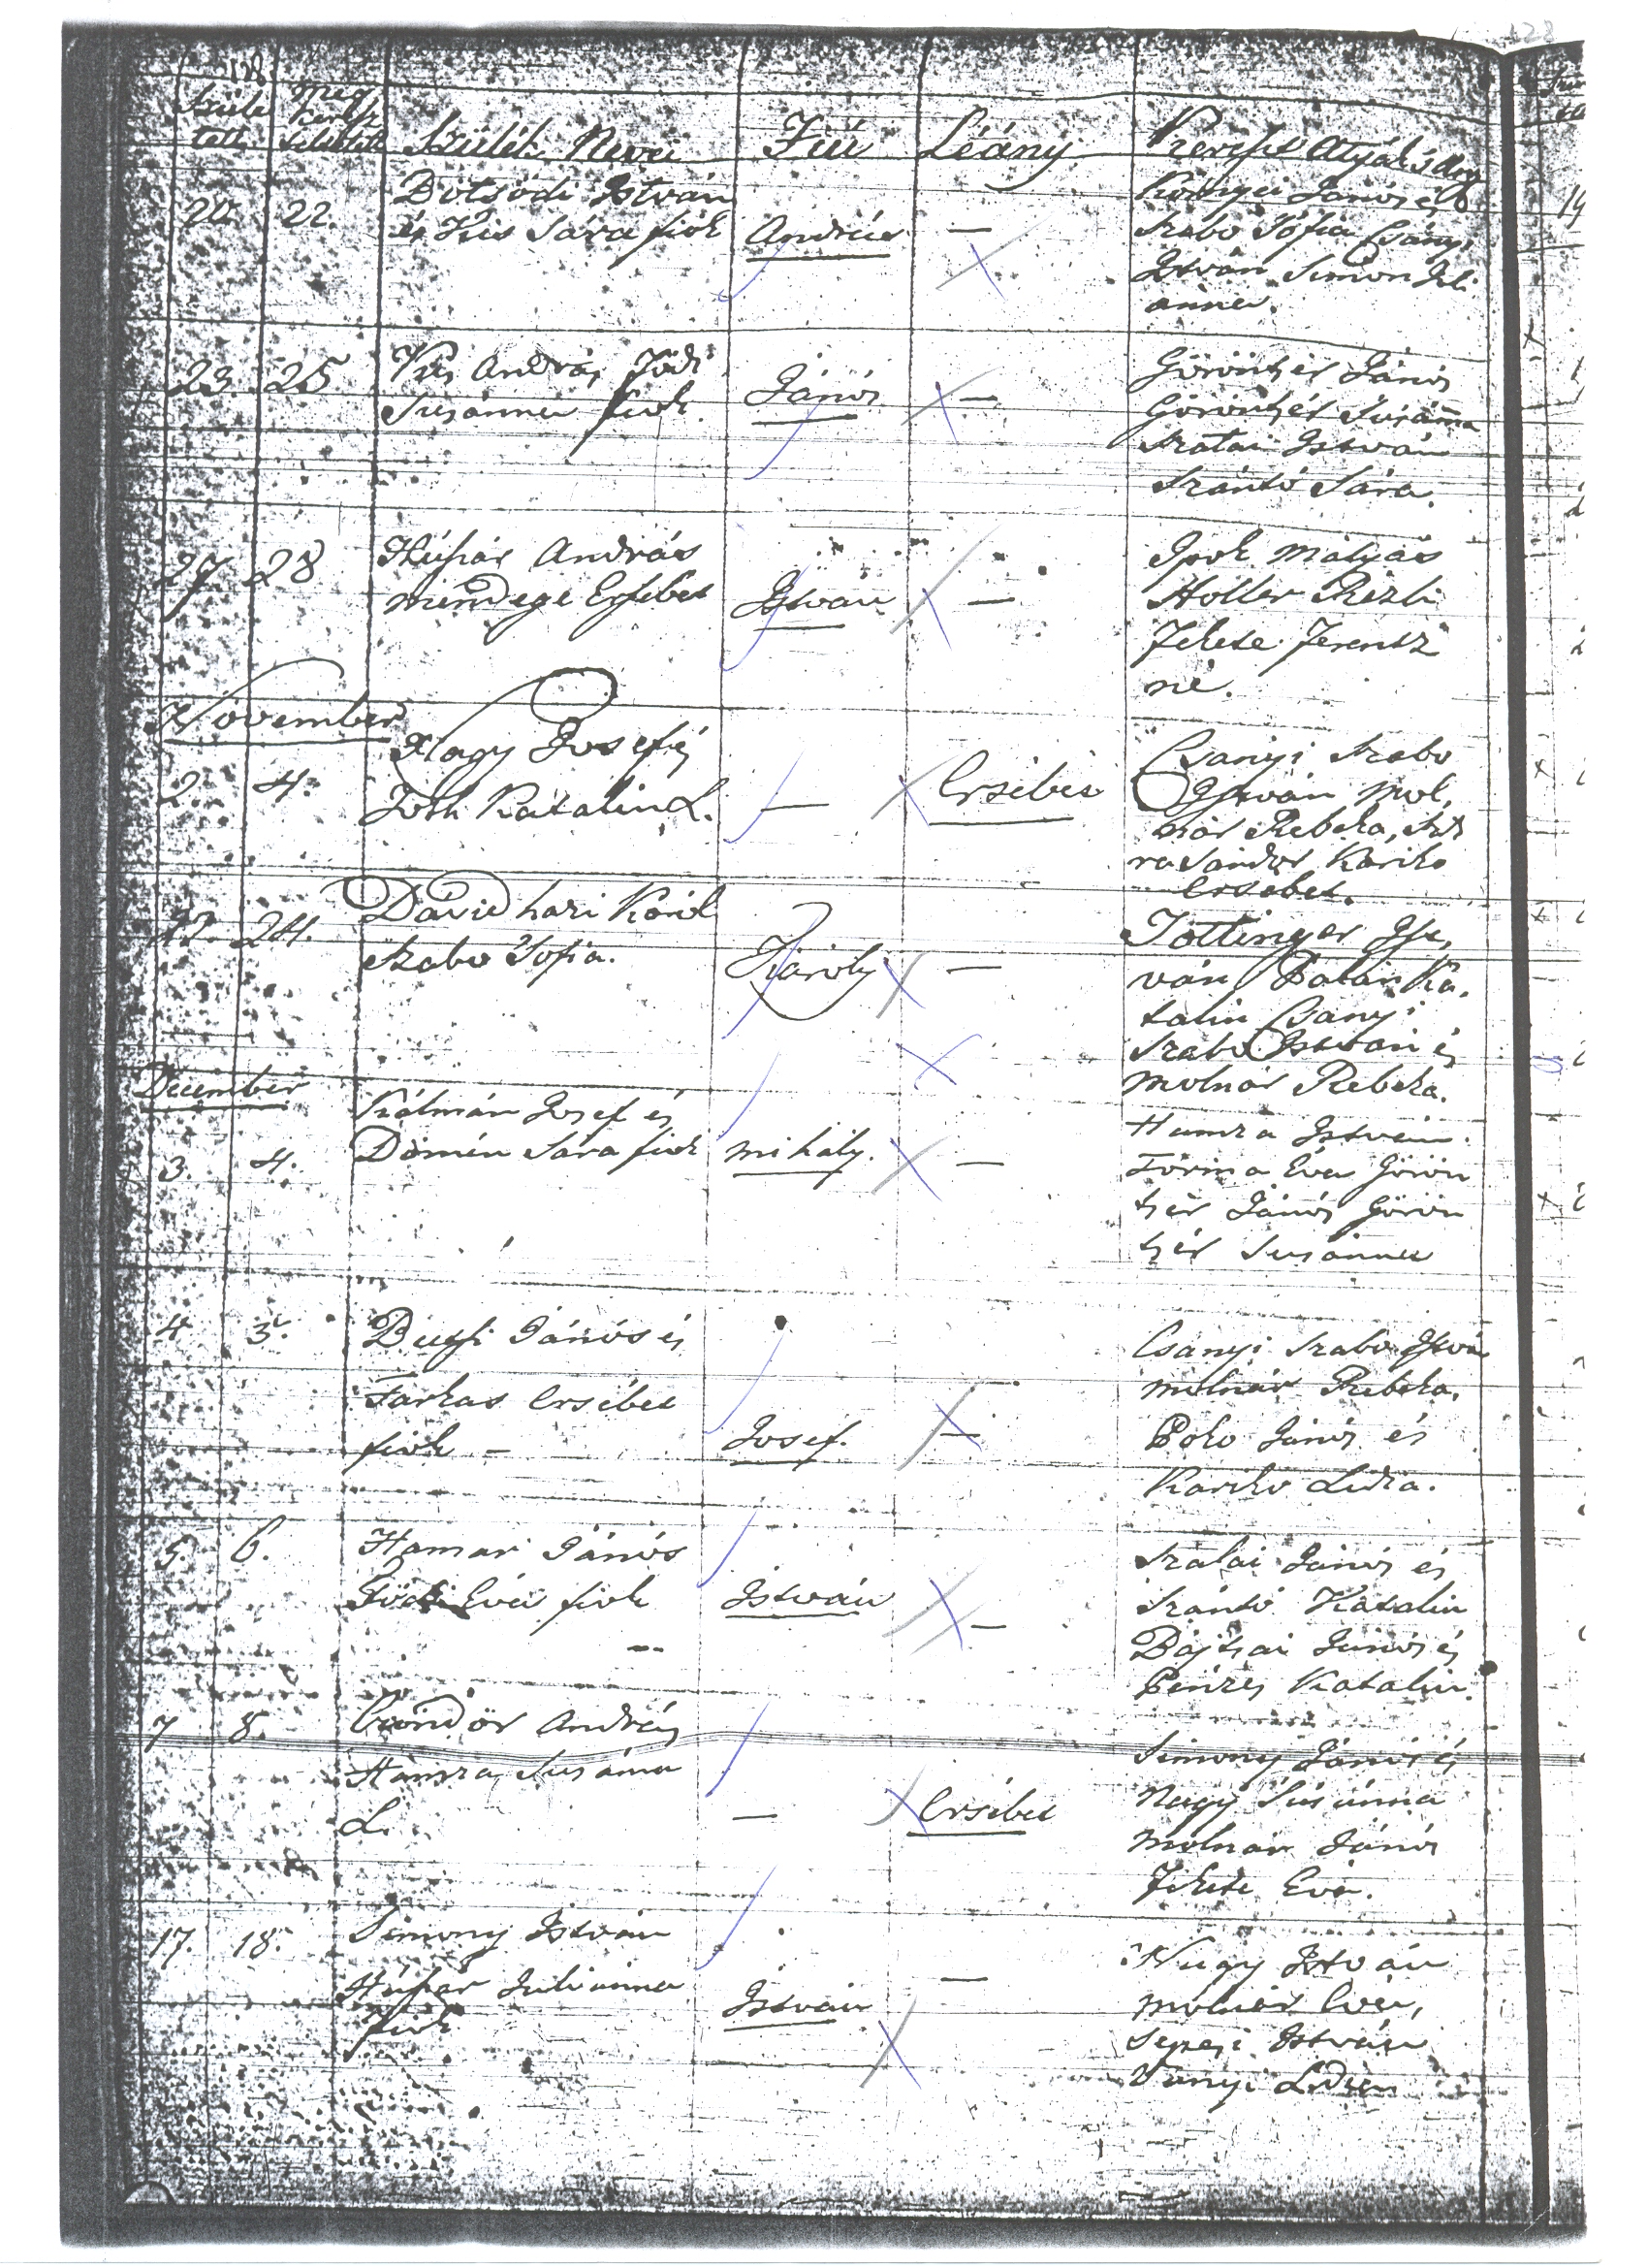 128
128
Szüle Meg
tett. keresz
teltetett Szülék Nevei Fiú Léány Kereszt Atyák s Any
20. 22. Bötsödi István
és Kis Sára fiok András —
Környei János és
Szabó Sófia Csányi
István Simon Juli
ánna.
23. 25 Kis András Födi
Susánna fiok. János —
Göröntsér János
Göröntsér Susánna
Szalai István
Szántó Sára.
27. 28 Húszár András
Mendegi Ersébet István —
Ipok Mátyás
Holler Rézli
Fekete Ferentz
né.
November
2. 4. Nagy Josef és
Toth Katalin L. — Ersébet
Csanyi Szabo
István Mol,
nár Rebeka,
Sándor Kariko
Ersébet.
22. 24. Dávidhazi Károl
Szabo Sofia. Károly —
Töttinger Ist,
ván Patai Ka,
talin Csanyi
Szabo István és
Molnár Rebeka.
December
3. 4. Kálmán Josef és
Dömén Sára fiok Mihály. —
Hamza István
Torma Éva Görön
tsér János Görön
tsér Susánna
4 5. Bugyi János és
Farkas Ersébet
fiok — Josef. —
Csanyi Szabo István
Molnár Rebeka.
Poko János és
Kariko Lidia.
5. 6. Hamar János
Födi Éva fiok István —
Szalai János és
Szántó Katalin
Bájtsai János és
Pénzes Katalin.
7 8. Göndör András
Hamza Susánna
L. — Ersébet
Simony János és
Nagy Susánna
Molnár János
Fekete Éva.
17. 18. Simony István
Húszár Juliánna
fiok István —
Nagy István
Molnár Éva,
Szepesi István
Vanyi Lidia